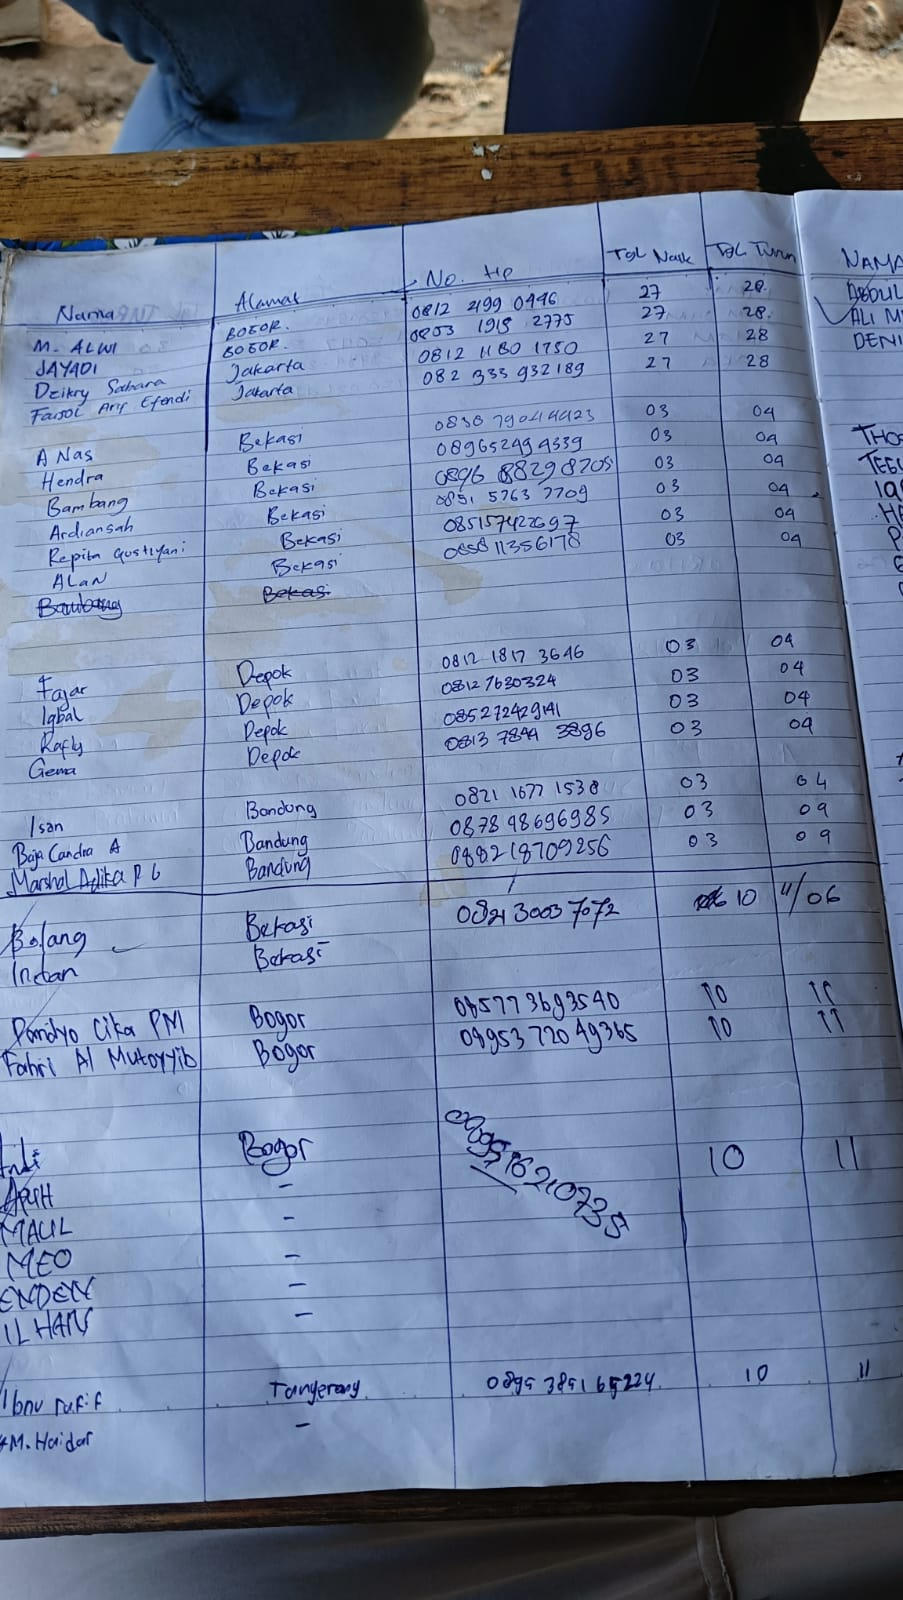 Nama Alamat No. Hp Tgl Naik Tgl Turun
M. ALWI BOGOR. 0812 2499 0446 27 28
JAYADI BOGOR. 0853 1915 2775 27 28.
Dzikry Sahara Jakarta 0812 1180 1750 27 28
Faisol Arif Efendi Jakarta 082 333 932 189 27 28
A Nas Bekasi 03 04
Hendra Bekasi 089652494339 03 04
Bambang Bekasi 0896 8829 8705 03 04
Ardiansah Bekasi 0851 5763 7709 03 04
Repita Gustiyani Bekasi 085157422697 03 04
ALAN Bekasi 0858 11356178 03 04
Bambang Bekasi
Fajar Depok 0812 1817 3646 03 04
Iqbal Depok 08127630324 03 04
Rafly Depok 085272429141 03 04
Gema Depok 0813 7844 3896 03 04
Isan Bandung 0821 1677 1538 03 04
Baja Candra A Bandung 0878 48696985 03 04
Marshal Adika P G Bandung 088218709256 03 04
Bolang Bekasi 0821 3003 7072 10 11/06
Intan Bekasi
Pandyo Cika PM Bogor 085773693540 10 11
Fahri Al Mutoyyib Bogor 08953 720 49365 10 11
Bogor 10 11
-
MAUL -
MEO -
ENDEN -
ILHAM -
Ibnu rafif Tangerang. 10 11
M. Haidar -
NAMA
ABDUL
ALI M
DENI